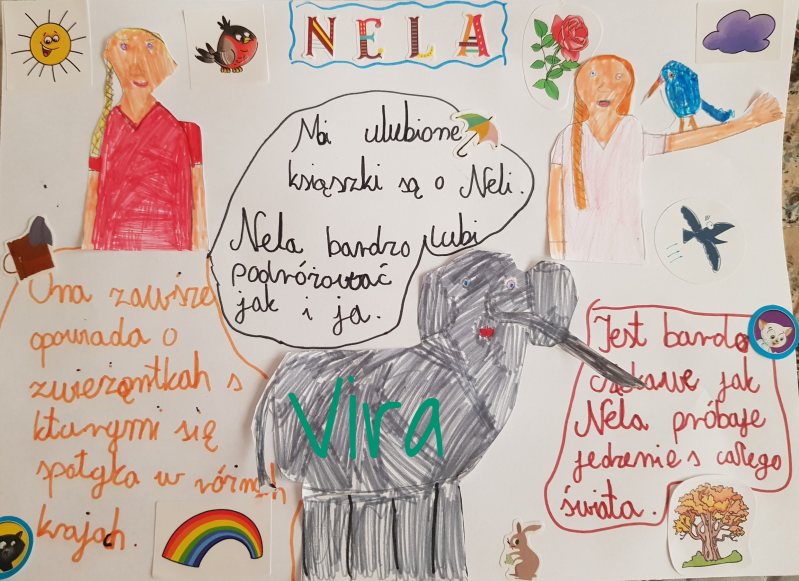 NELA
Moi ulubione
książszki są o Neli.
Nela bardzo lubi
podrużowac
jak i ja.
Ona zawsze
opowiada o
zwierzątkah s
kturymi się
spotyka w różnych
krajach.
Vira
Jest bardo
czekawe jak
Nela próbuje
jedzenie s całego
świata.